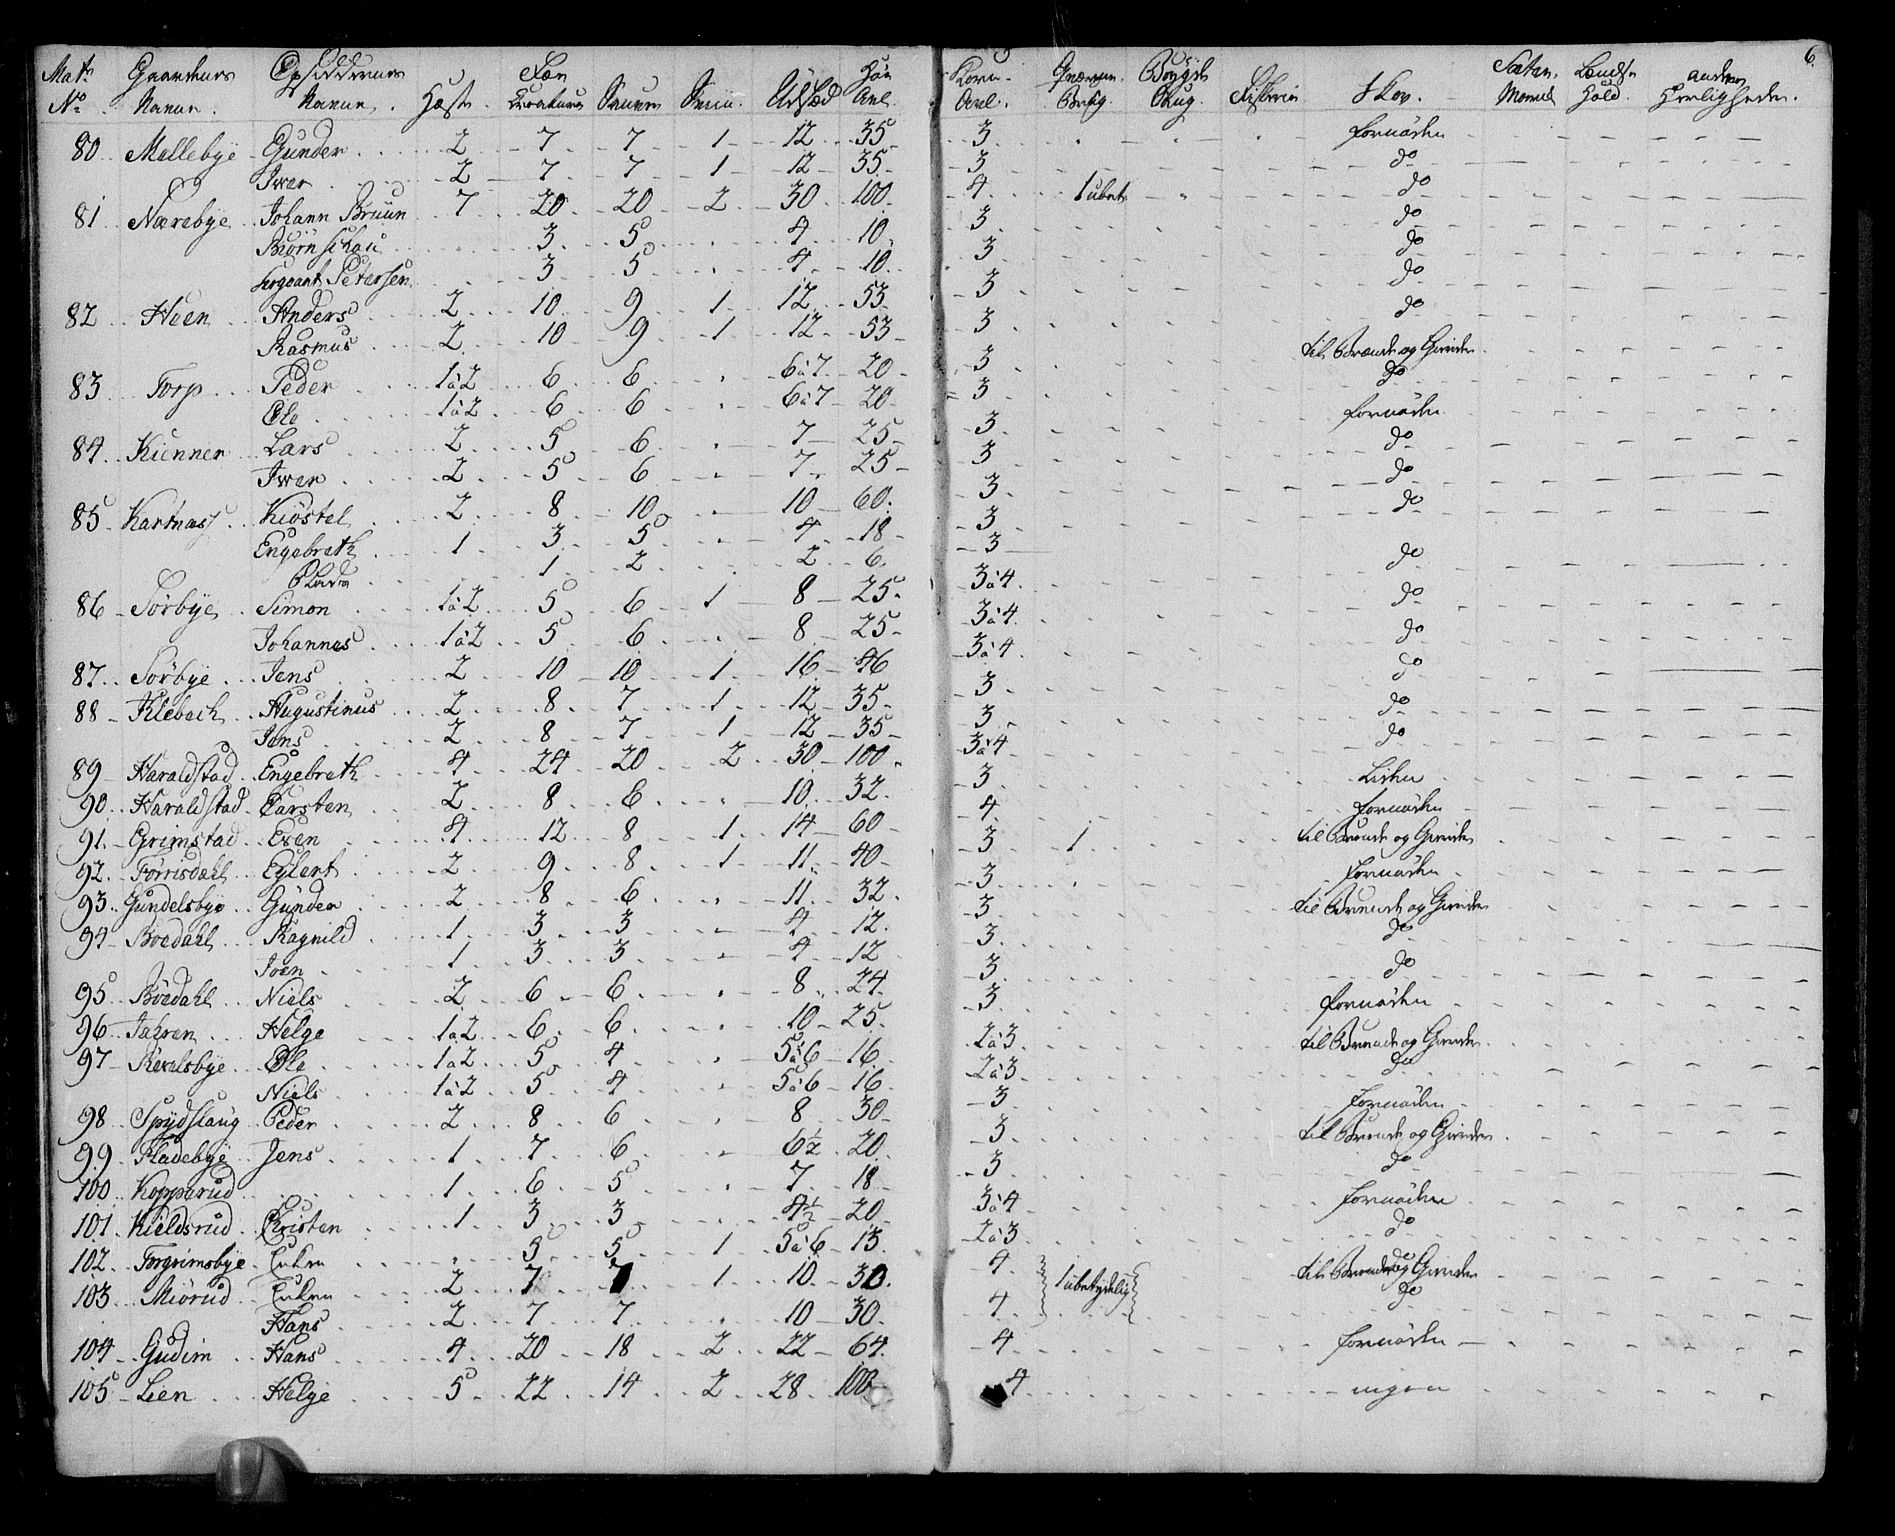 6.
Matr No. Gaardenes Navne. Opsiddernes Navne. Hæste. Fæe Kreature Sauer Sviin. Udsæd Høe Avl. Korn-Avl. Qværne Brug. Bøygde Brug. Fiskerie Skov. Sæter Lands Hold. andre Herligheder.
80 Mellebye Gunder 2 7 7 1 12 35 3 fornøden
Iver 2 7 7 1 12 35 3 do
81 Nærebye Johann Bruun 7 20 20 2 30 100 4 1 ubet. do
Biørn 3 5 4 10 3 do
Sergeant Petersen 3 5 4 10 3 do
82 Heen Anders 2 10 9 1 12 53 3 do
Rasmus 2 10 9 1 12 53 3 do
83 Torp Peder 1 à 2 6 6 6 à 7 20 3 til Brænde og Gierder
Ole 1 à 2 6 6 6 à 7 20 3 do
84 Kienner Lars 2 5 6 7 25 3 fornøden
Iver 2 5 6 7 25 3 do
85 Kartnæs Kiøstel 2 8 10 10 60 3 do
Engebreth 1 3 5 4 18 3 do
1 2 2 6 3
86 Sørbye Simon 1 à 2 5 6 1 8 25 3 à 4 do
Johannes 1 à 2 5 6 8 25 3 à 4 do
87 Sørbye Jens 2 10 10 1 16 46 3 à 4 do
88 Klebech Augustinus 2 8 7 1 12 35 3 do
Jens 2 8 7 1 12 35 3 do
89 Haraldstad Engebreth 4 24 20 2 30 100 3 à 4 do
90 Haraldstad Carsten 2 8 6 10 32 3
91 Grimstad Even 4 12 8 1 14 60 4 fornøden
92 Torrisdahl Eylert 2 9 8 1 11 40 3 1 til Brænde og Gierder
93 Gundelsbye Gunder 2 8 6 11 32 3 fornøden
94 Bøedahl Ragnild 1 3 3 4 12 3 til Brænde og Gierder
Joen 1 3 3 4 12 3 do
95 Bøedahl Niels 2 6 6 8 24 3 do
96 Jahren Helge 1 à 2 6 6 10 25 3 fornøden
97 Revelsbye Ole 1 à 2 5 4 5 à 6 16 2 à 3 til Brænde og Gierder
Niels 1 à 2 5 4 5 à 6 16 2 à 3 do
98 Spydslaug Peder 2 8 6 8 30 3 fornøden
99 Fladebye Jens 1 7 6 6½ 20 3 til Brænde og Gierder
100 Kopperud 1 6 5 7 18 3 do
101 Kieldsrud Christen 1 3 3 4½ 20 3 à 4 fornøden
102 Torgrimsbye Enken 5 5 1 5 à 6 15 2 à 3 do
103 Miørud Enken 2 7 7 1 10 30 4 1 ubetydelig til Brænde og Gierder
Hans 2 7 7 10 30 4 do
104 Gudim Hans 4 20 18 2 22 64 4 fornøden
105 Leen Helge 5 22 14 2 28 100 4 ingen